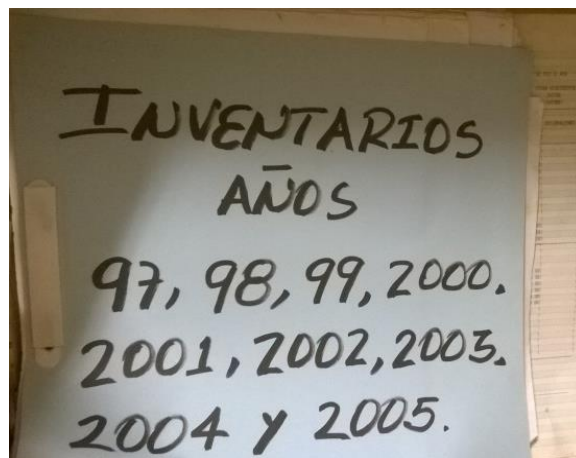 INVENTARIOS
AÑOS
97, 98, 99, 2000.
2001, 2002, 2003.
2004 y 2005.